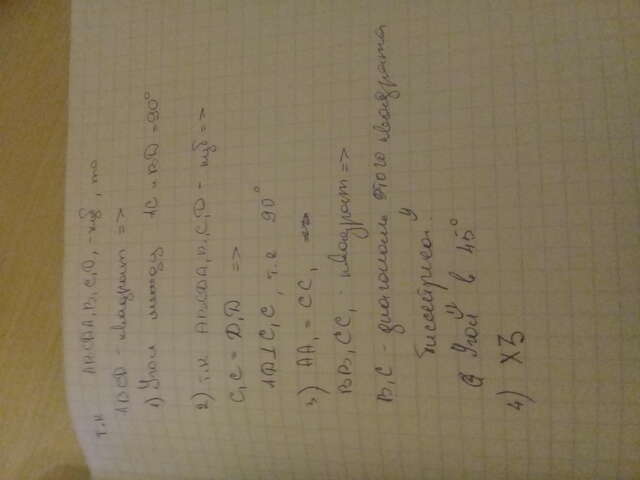 т.к ABCDA,B,C,D, - куб, то
ABCD - квадрат =>
1) Угол между AC и BD = 90°
2) т.к ABCDA,B,C,D - куб =>
C,C = D,D =>
AD⊥C,C, т.е 90°
3) AA, = CC, =>
BB,CC, - квадрат =>
B,C - диагональ этого квадрата
и биссектриса.
Угол в 45°
4) ХЗ